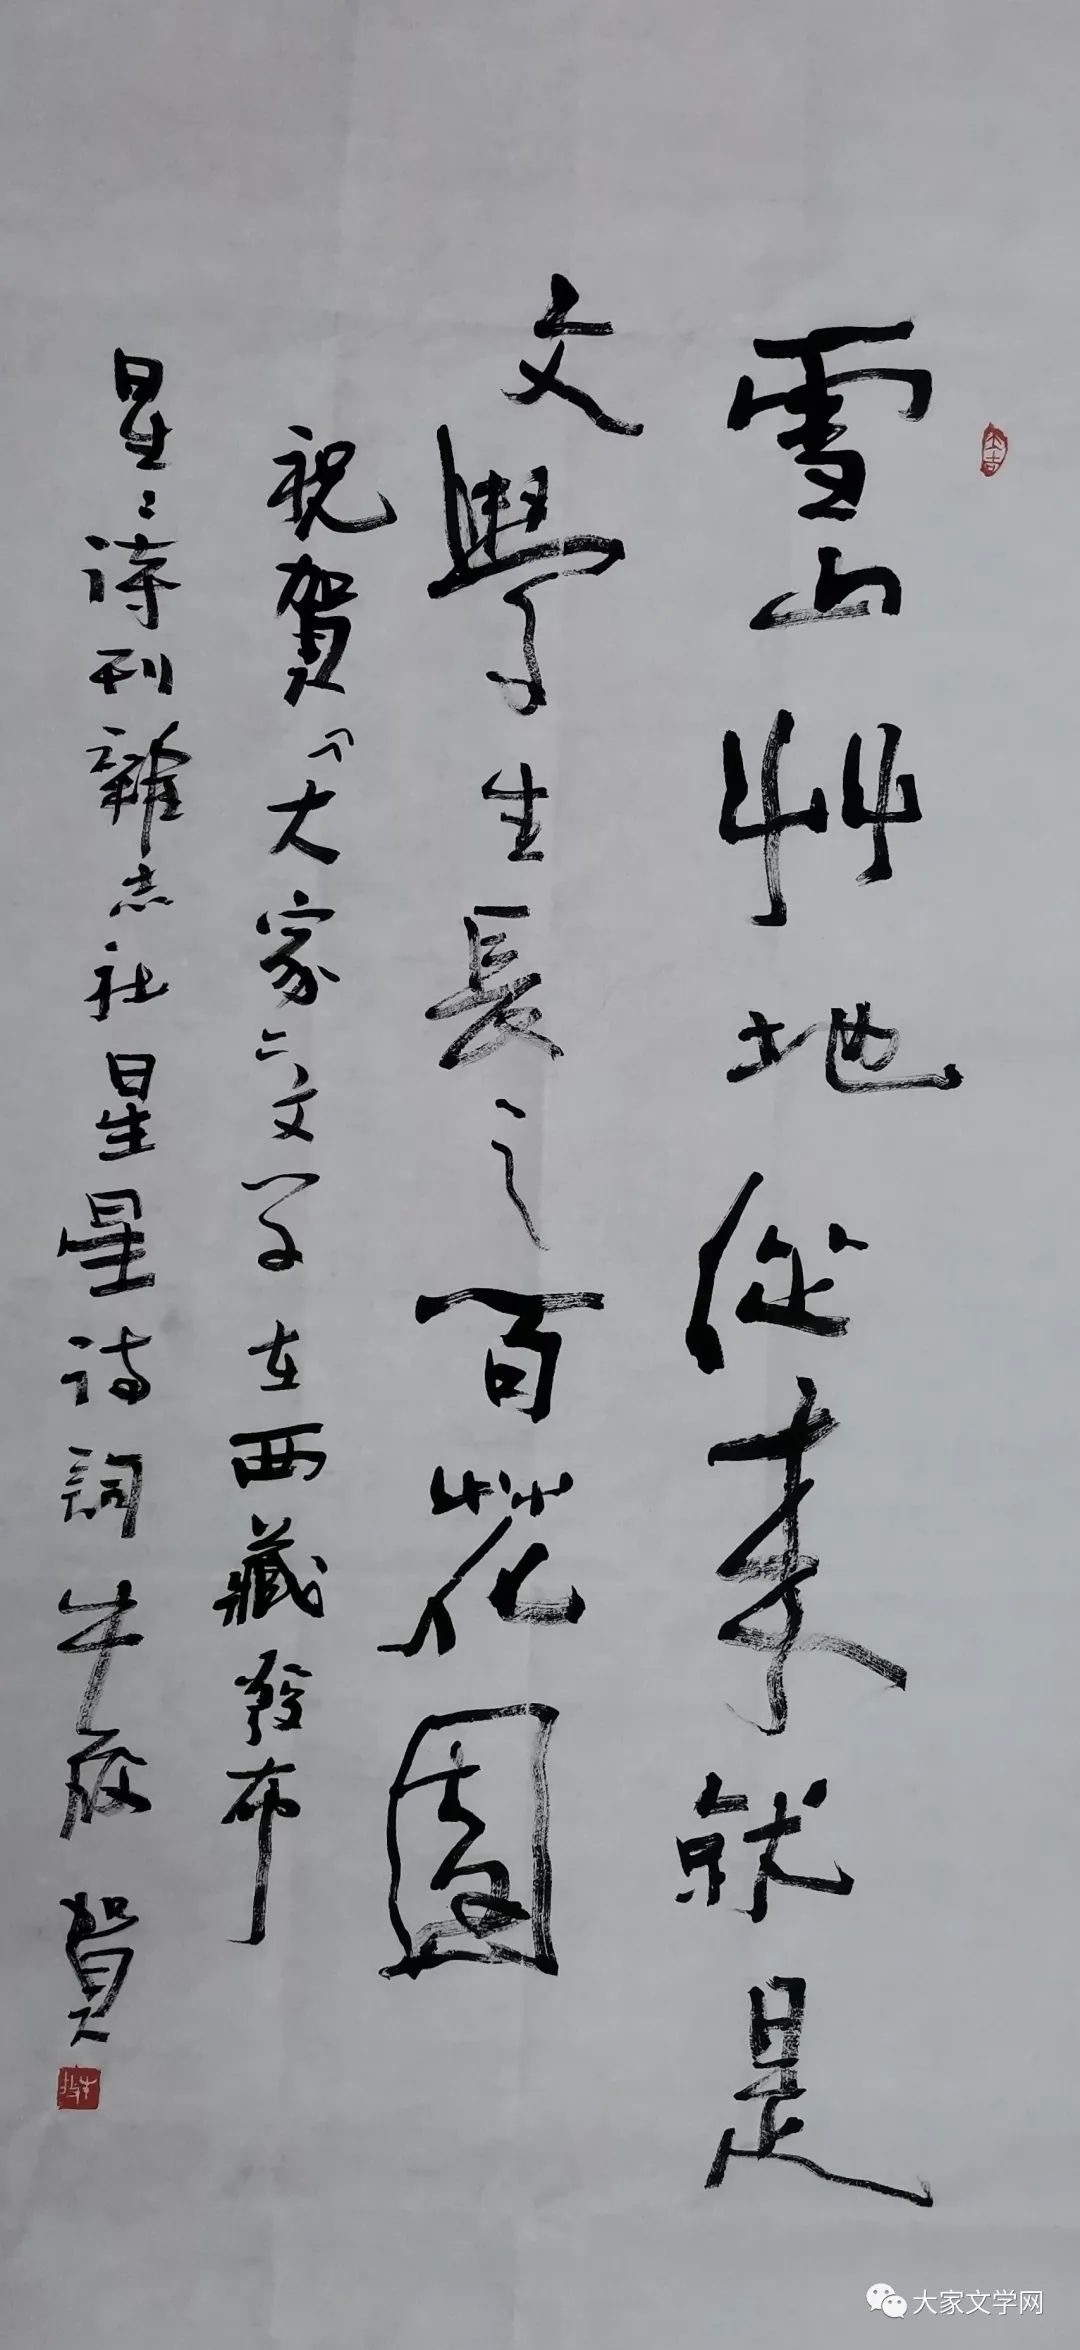 雪山艸地從来就是
文學生長之百花園
祝賀《大家》文学在西藏發布
星々诗刊雜志社星星诗詞牛放賀
大家文学网